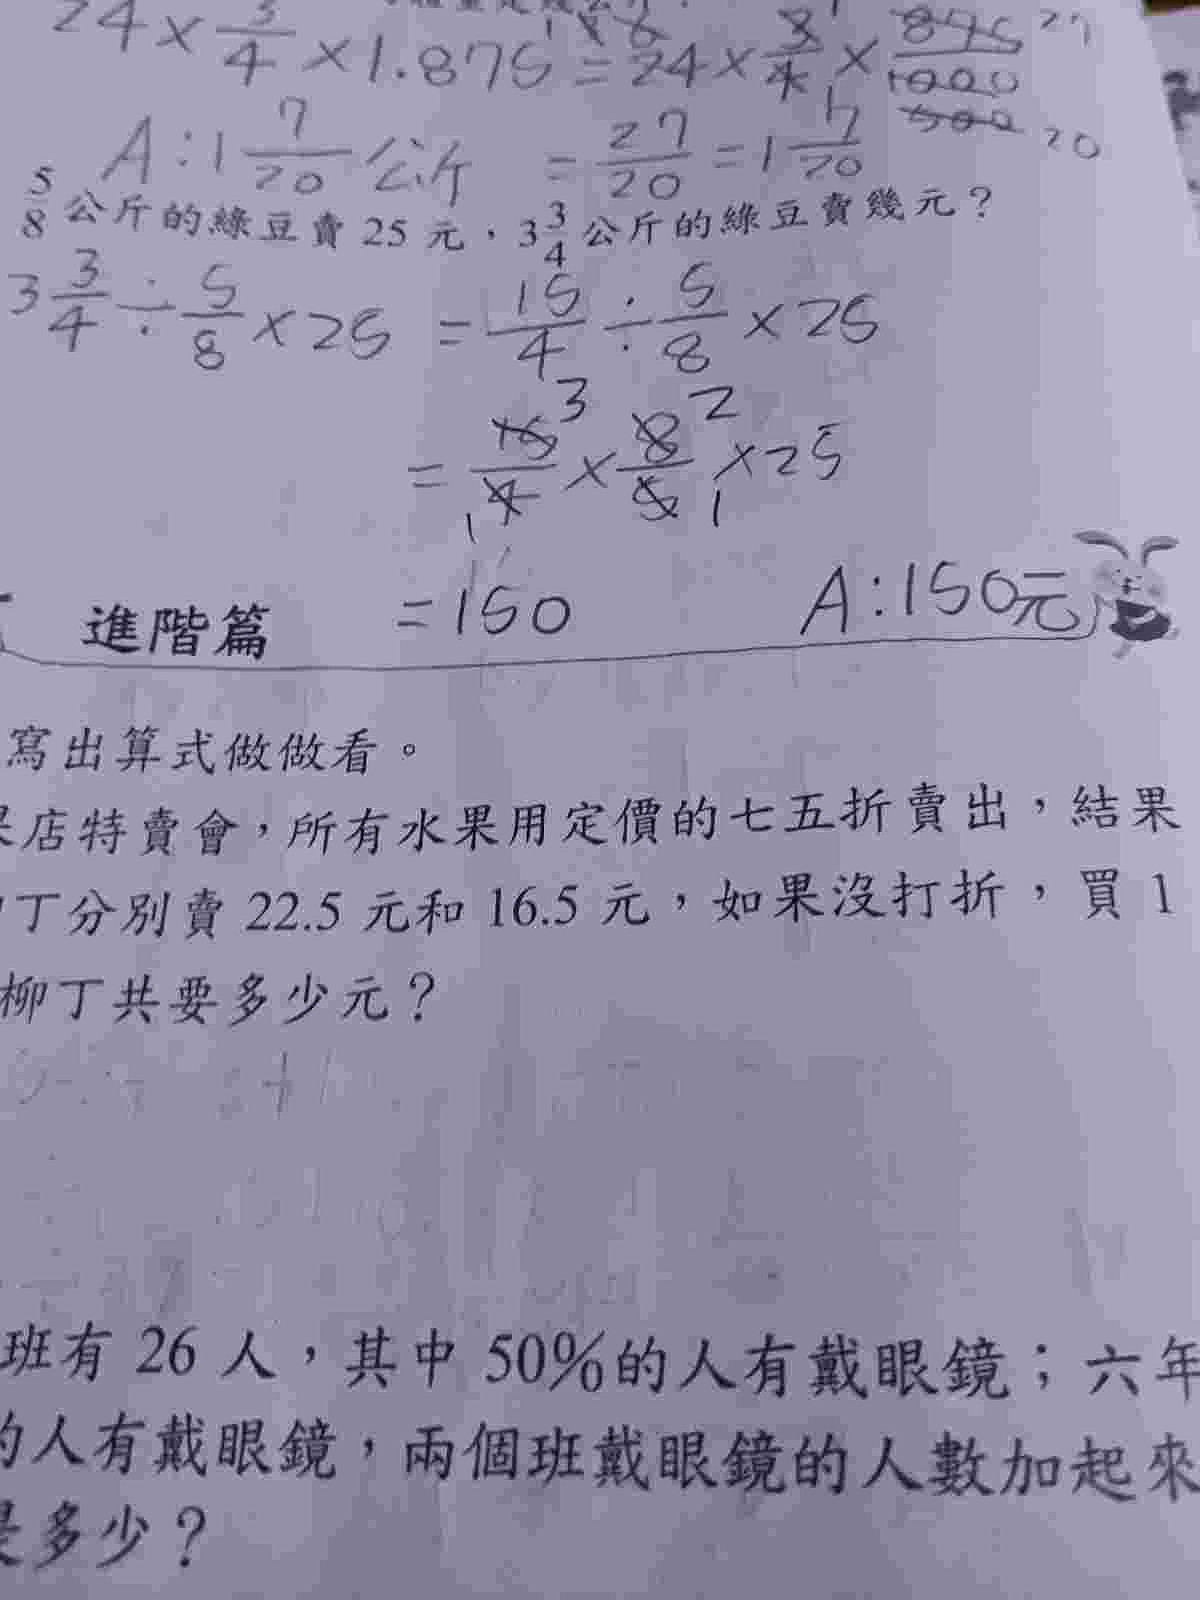 24 × 3/4 × 1.875 = 24 × 3/4 × 875/1000 27
A:1 7/20 公斤 = 27/20 = 1 7/20 500 20
5/8 公斤的綠豆賣 25 元,3 3/4 公斤的綠豆賣幾元?
3 3/4 ÷ 5/8 × 25 = 15/4 ÷ 5/8 × 25
= 15/4 × 8/5 × 25
3 2
1 1
進階篇 = 150 A:150元
寫出算式做做看。
店特賣會,所有水果用定價的七五折賣出,結果
丁分別賣 22.5 元和 16.5 元,如果沒打折,買 1
柳丁共要多少元?
班有 26 人,其中 50%的人有戴眼鏡;六年
的人有戴眼鏡,兩個班戴眼鏡的人數加起來
是多少?